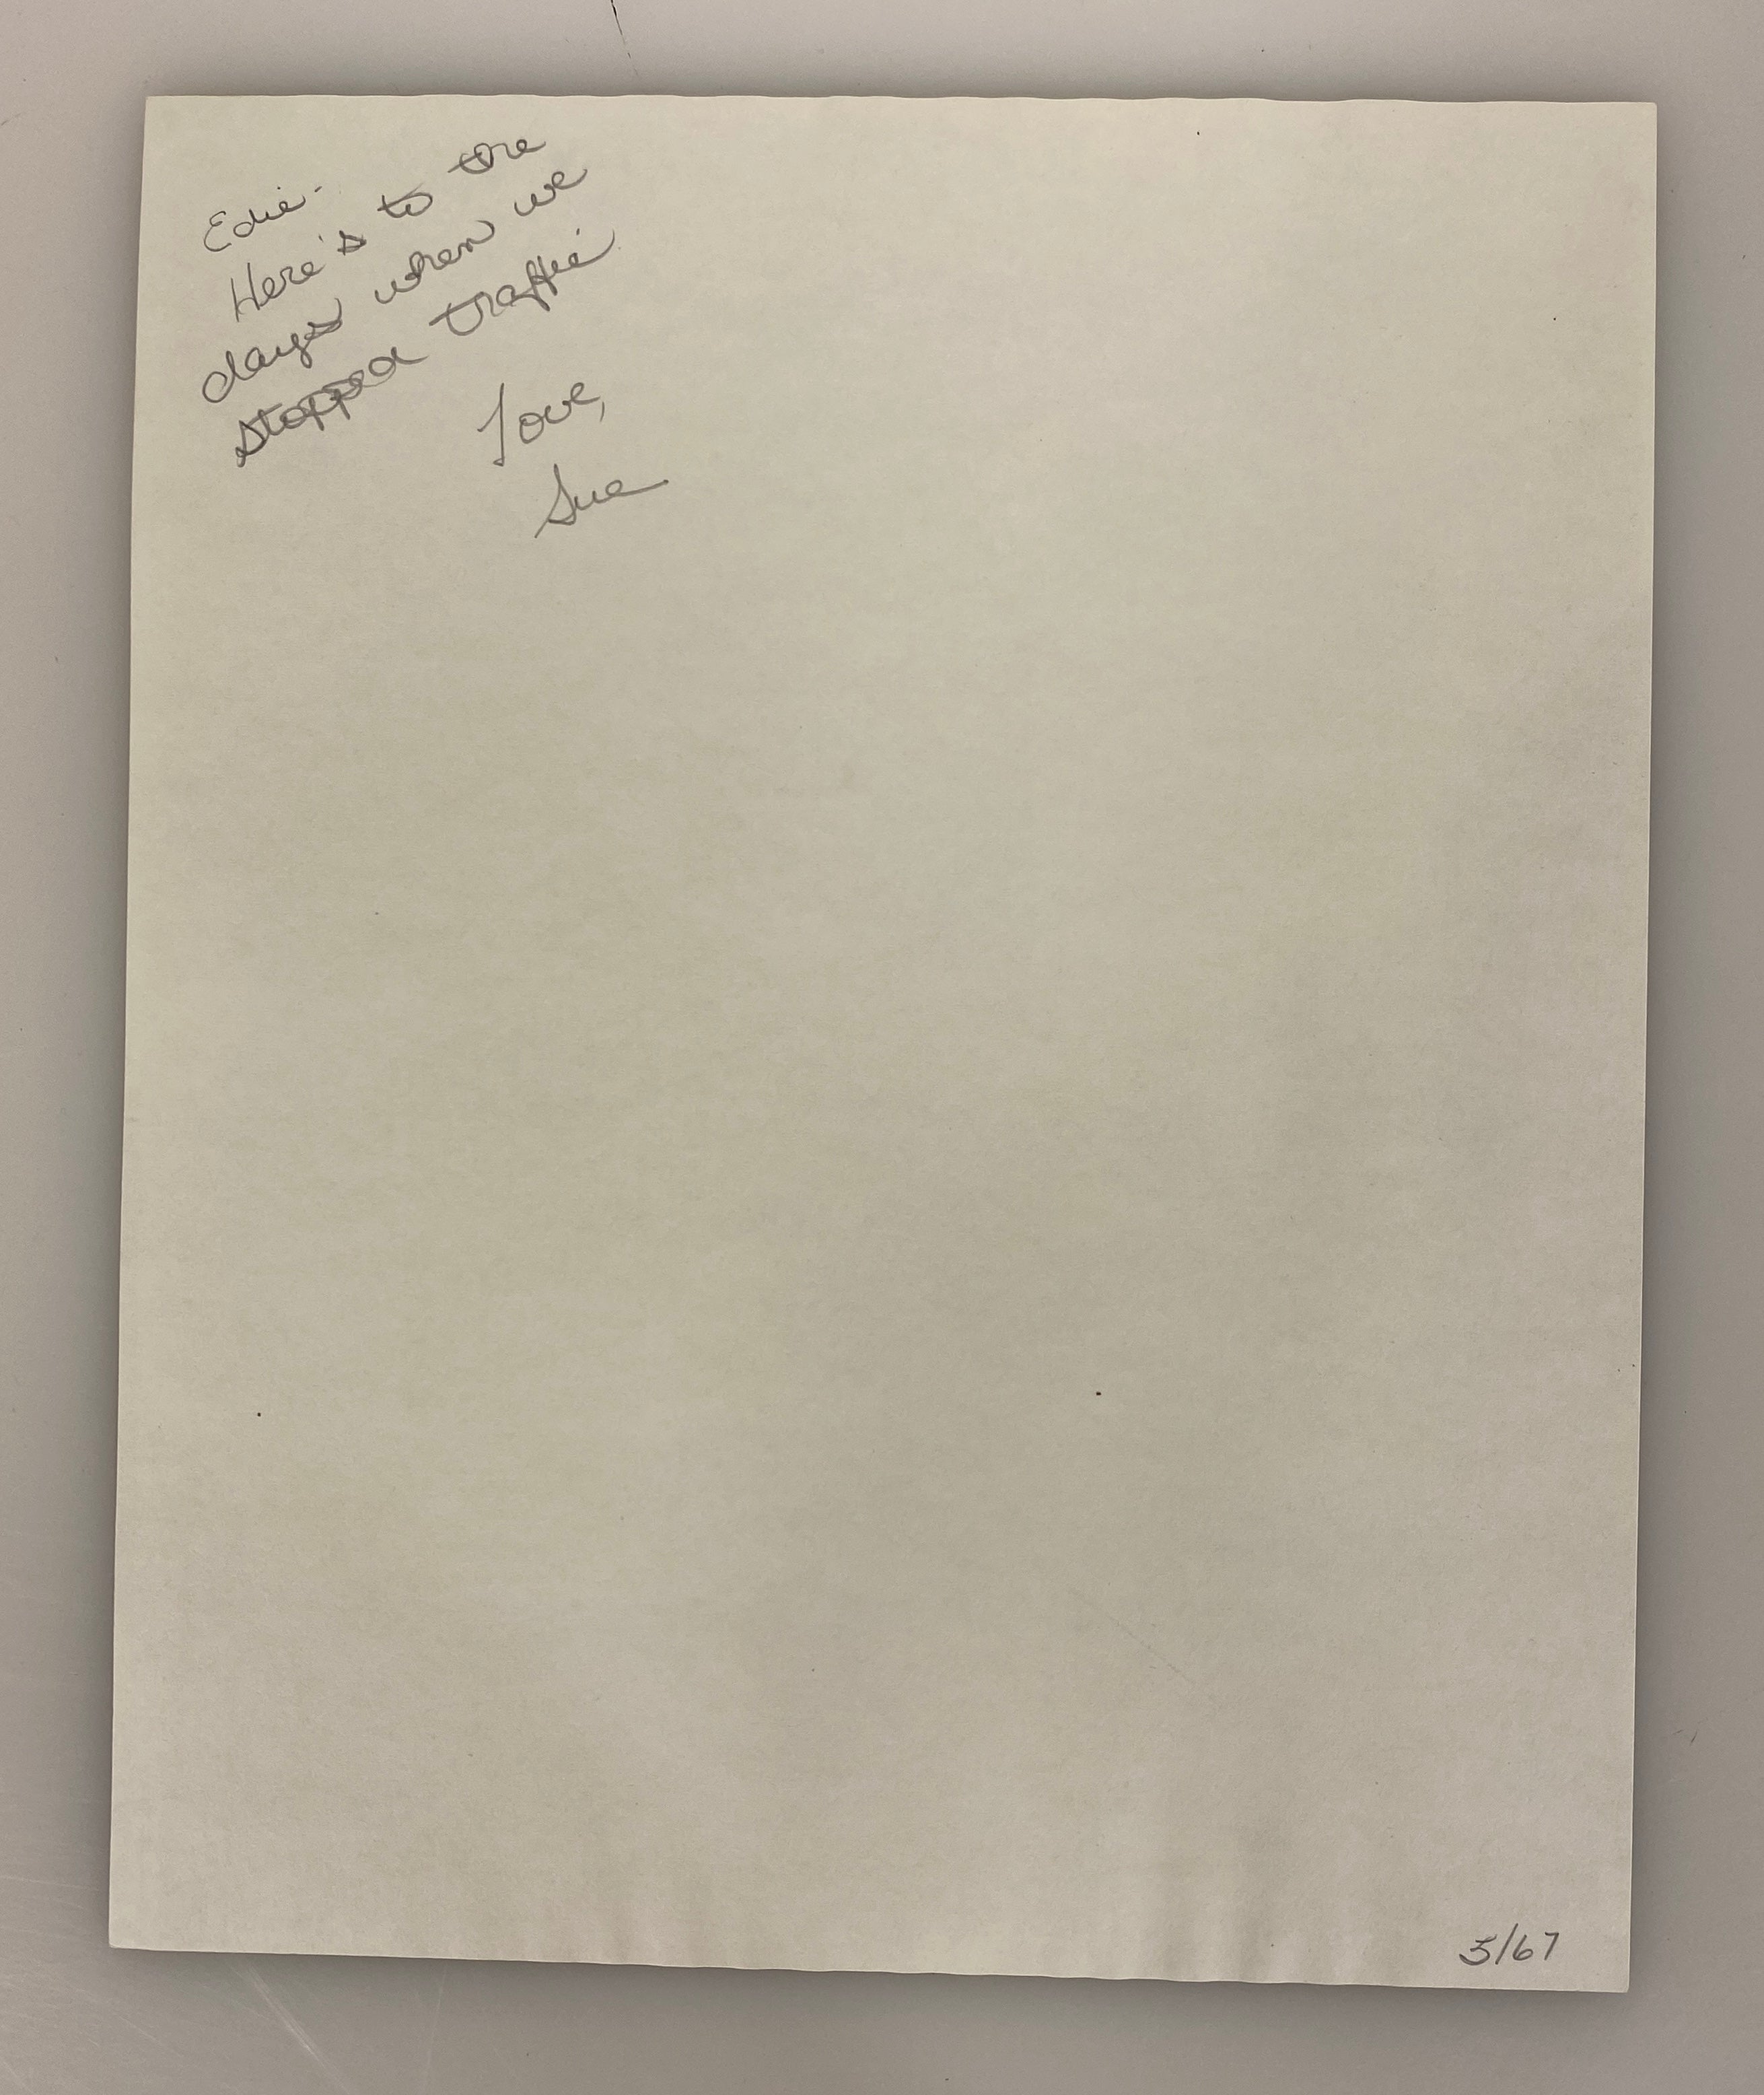 Edie-
Here's to the
days when we
stopped traffic
Love,
Sue
5/67